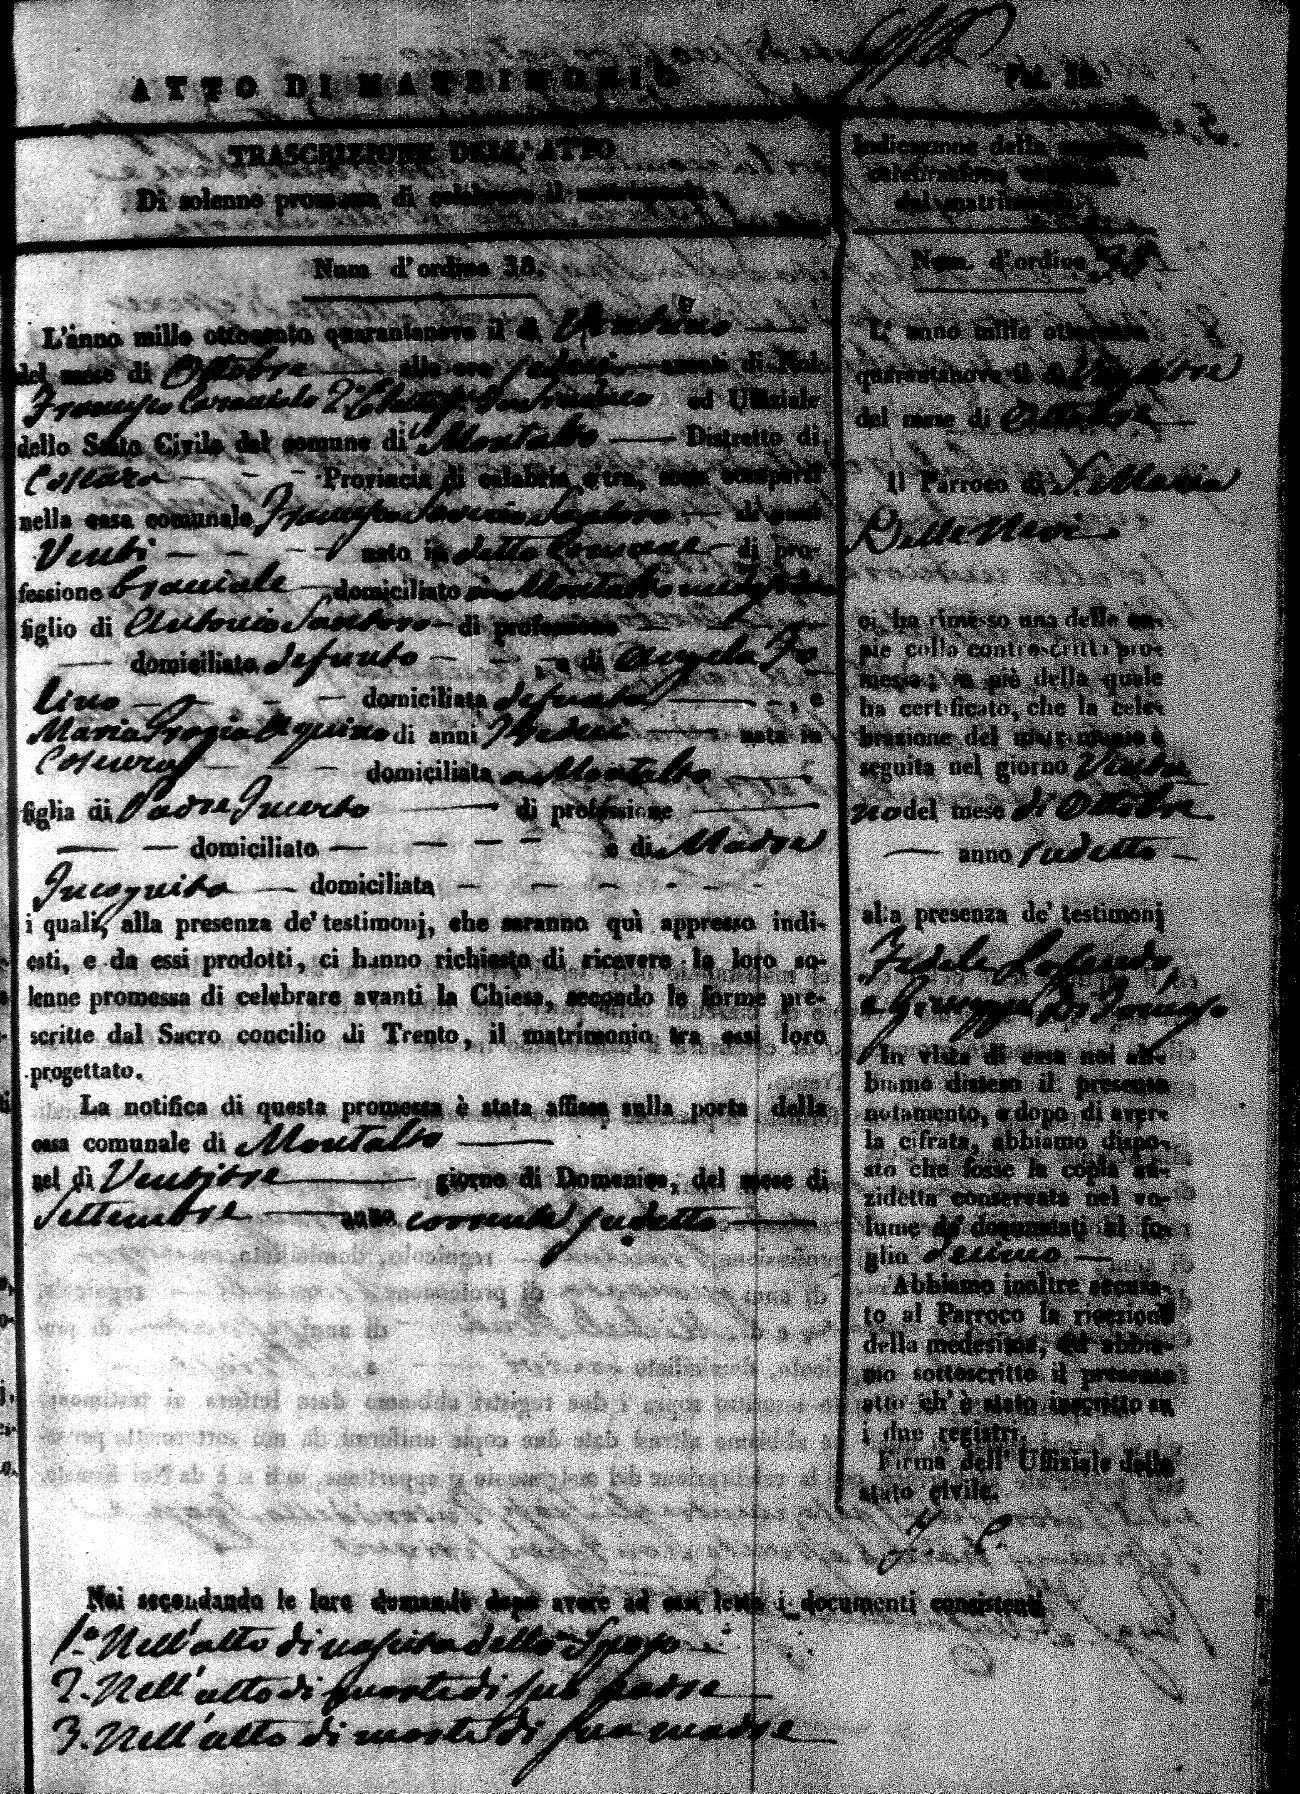 ATTO DI MATRIMONIO
TRASCRIZIONE DELL'ATTO
Di solenne promessa di celebrare il matrimonio
Num d'ordine 38.
L'anno mille ottocento quarantanove il dì Ventuno
del mese di Ottobre alle ore sedeci avanti di Noi
Francesco 2° ed Uffiziale
dello Stato Civile del comune di Montalto Distretto di
Cosenza Provincia di calabria citra, sono comparsi
nella casa comunale Francesco Saverio Santoro di anni
Venti nato in detto Comune di pro-
fessione Bracciale domiciliato in Montalto
figlio di Antonio Santoro di professione
domiciliato defunto e di Angela Fo
lino domiciliata defunta, e
Maria Grazia Aquino di anni nata in
Cosenza domiciliata a Montalto
figlia di Padre Incerto di professione
domiciliato e di Madre
Incognita domiciliata
i quali, alla presenza de' testimonj, che saranno quì appresso indi-
cati, e da essi prodotti, ci hanno richiesto di ricevere la loro so-
lenne promessa di celebrare avanti la Chiesa, secondo le forme pre-
scritte dal Sacro concilio di Trento, il matrimonio tra essi loro
progettato.
La notifica di questa promessa è stata affissa sulla porta della
casa comunale di Montalto
nel dì Ventitre giorno di Domenica, del mese di
Settembre anno corrente sudetto
Indicazione della
celebrazione
del matrimonio
Num. d'ordine 38
L'anno mille ottocento
quarantanove il dì Ventitre
del mese di Ottobre
Il Parroco di S. Maria
Delle Nevi
ci ha rimesso una delle co-
pie colla controscritta pro-
messa; in piè della quale
ha certificato, che la cele-
brazione del matrimonio è
seguita nel giorno Ventu
no del mese di Ottobre
anno sudetto
alla presenza de' testimonj
Fedele Loferedo,
e Giuseppe Di
In vista di essa noi ab-
biamo disteso il presente
notamento, e dopo di aver-
la cifrata, abbiamo dispo-
sto che fosse la copia an-
zidetta conservata nel vo-
lume de' documenti al fo-
glio decimo
Abbiamo inoltre accusa-
to al Parroco la ricezione
della medesima, ed abbia-
mo sottoscritto il presente
atto ch' è stato inscritto su
i due registri.
Firma dell' Uffiziale dello
stato civile.
F. C.
Noi secondando le loro domande dopo avere ad essi letto i documenti consistenti
1.° Nell'atto di nascita dello Sposo
2. Nell'atto di morte di suo padre
3. Nell'atto di morte di sua madre